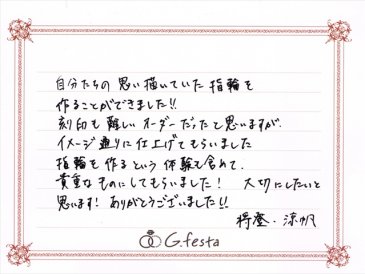 自分たちの思い描いていた指輪を
作ることができました!!
刻印も難しいオーダーだったと思いますが、
イメージ通りに仕上げてもらいました
指輪を作るという体験も含めて、
貴重なものにしてもらいました! 大切にしたいと
思います! ありがとうございました!!
将登・涼帆
G.festa